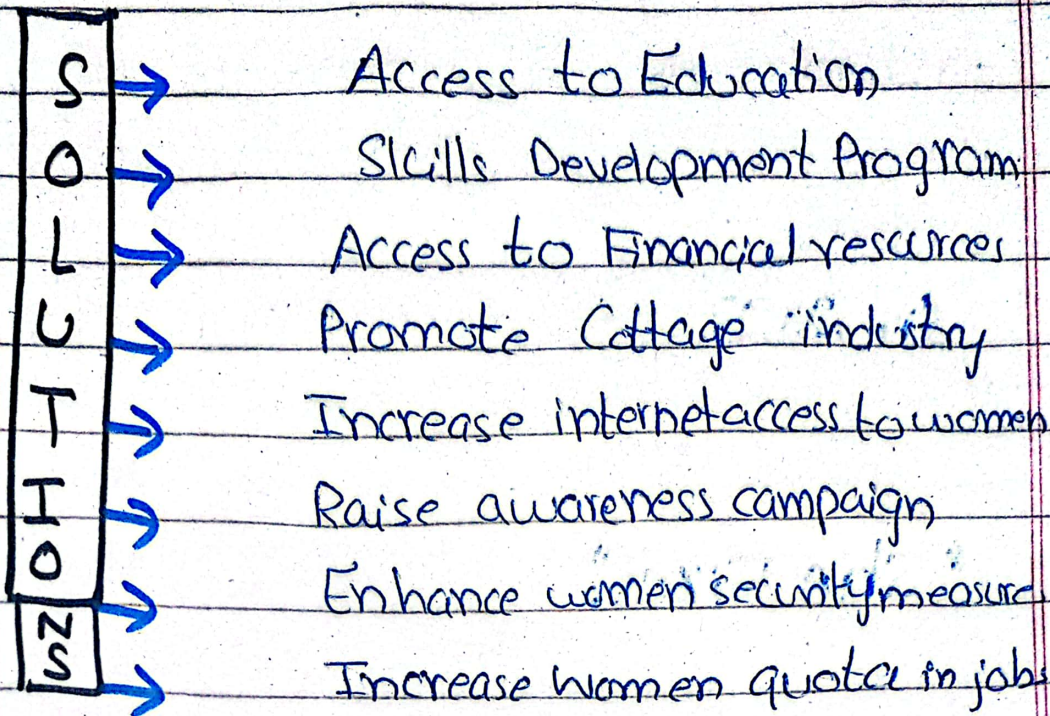 S → Access to Education
O → Skills Development Program
L → Access to Financial resources
U → Promote Cottage industry
T → Increase internet access to women
I → Raise awareness campaign
O → Enhance women security measure
N
S → Increase women quota in jobs